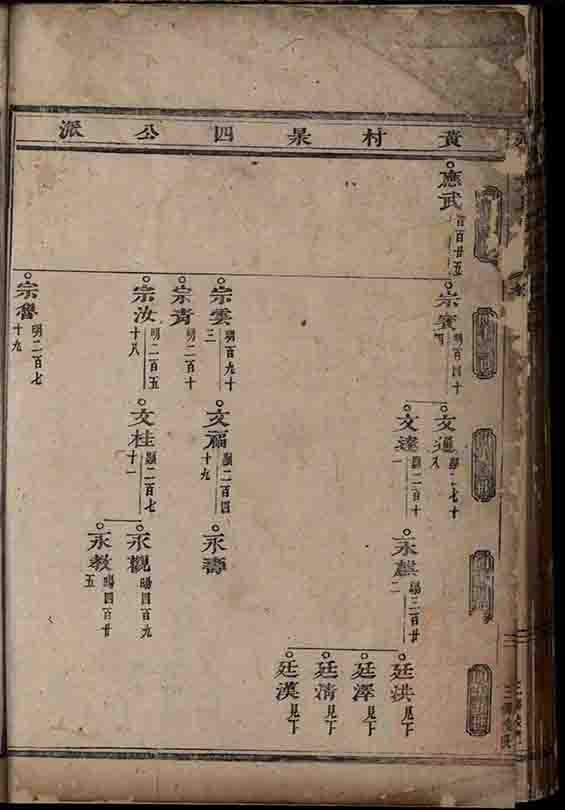 黃村杲四公派
應武
百廿五
宗寶
明百四十四
宗雲
明百九十三
宗青
明二百十
宗汝
明二百五十八
宗魯
明二百七十九
文通
文達
顯二百十一
文福
顯二百四十九
文桂
顯二百七十一
永麒
陽三百廿二
永壽
永觀
陽四百九
永敎
陽四百廿五
廷洪
見下
廷澤
見下
廷清
見下
廷漢
見下